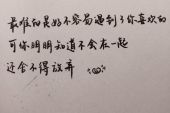 最难的是好不容易遇到了你喜欢的
可你明明知道不会在一起
还舍不得放弃